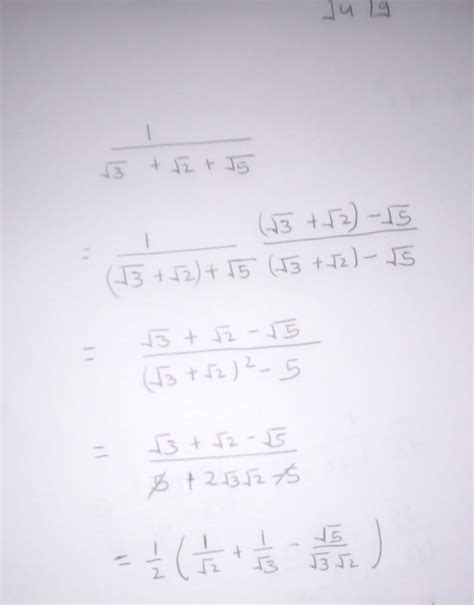 1 / (√3 + √2 + √5)
= 1 / ((√3 + √2) + √5) ((√3 + √2) - √5) / ((√3 + √2) - √5)
= (√3 + √2 - √5) / ((√3 + √2)² - 5)
= (√3 + √2 - √5) / (5 + 2√3√2 - 5)
= 1/2 (1/√2 + 1/√3 - √5/(√3√2))